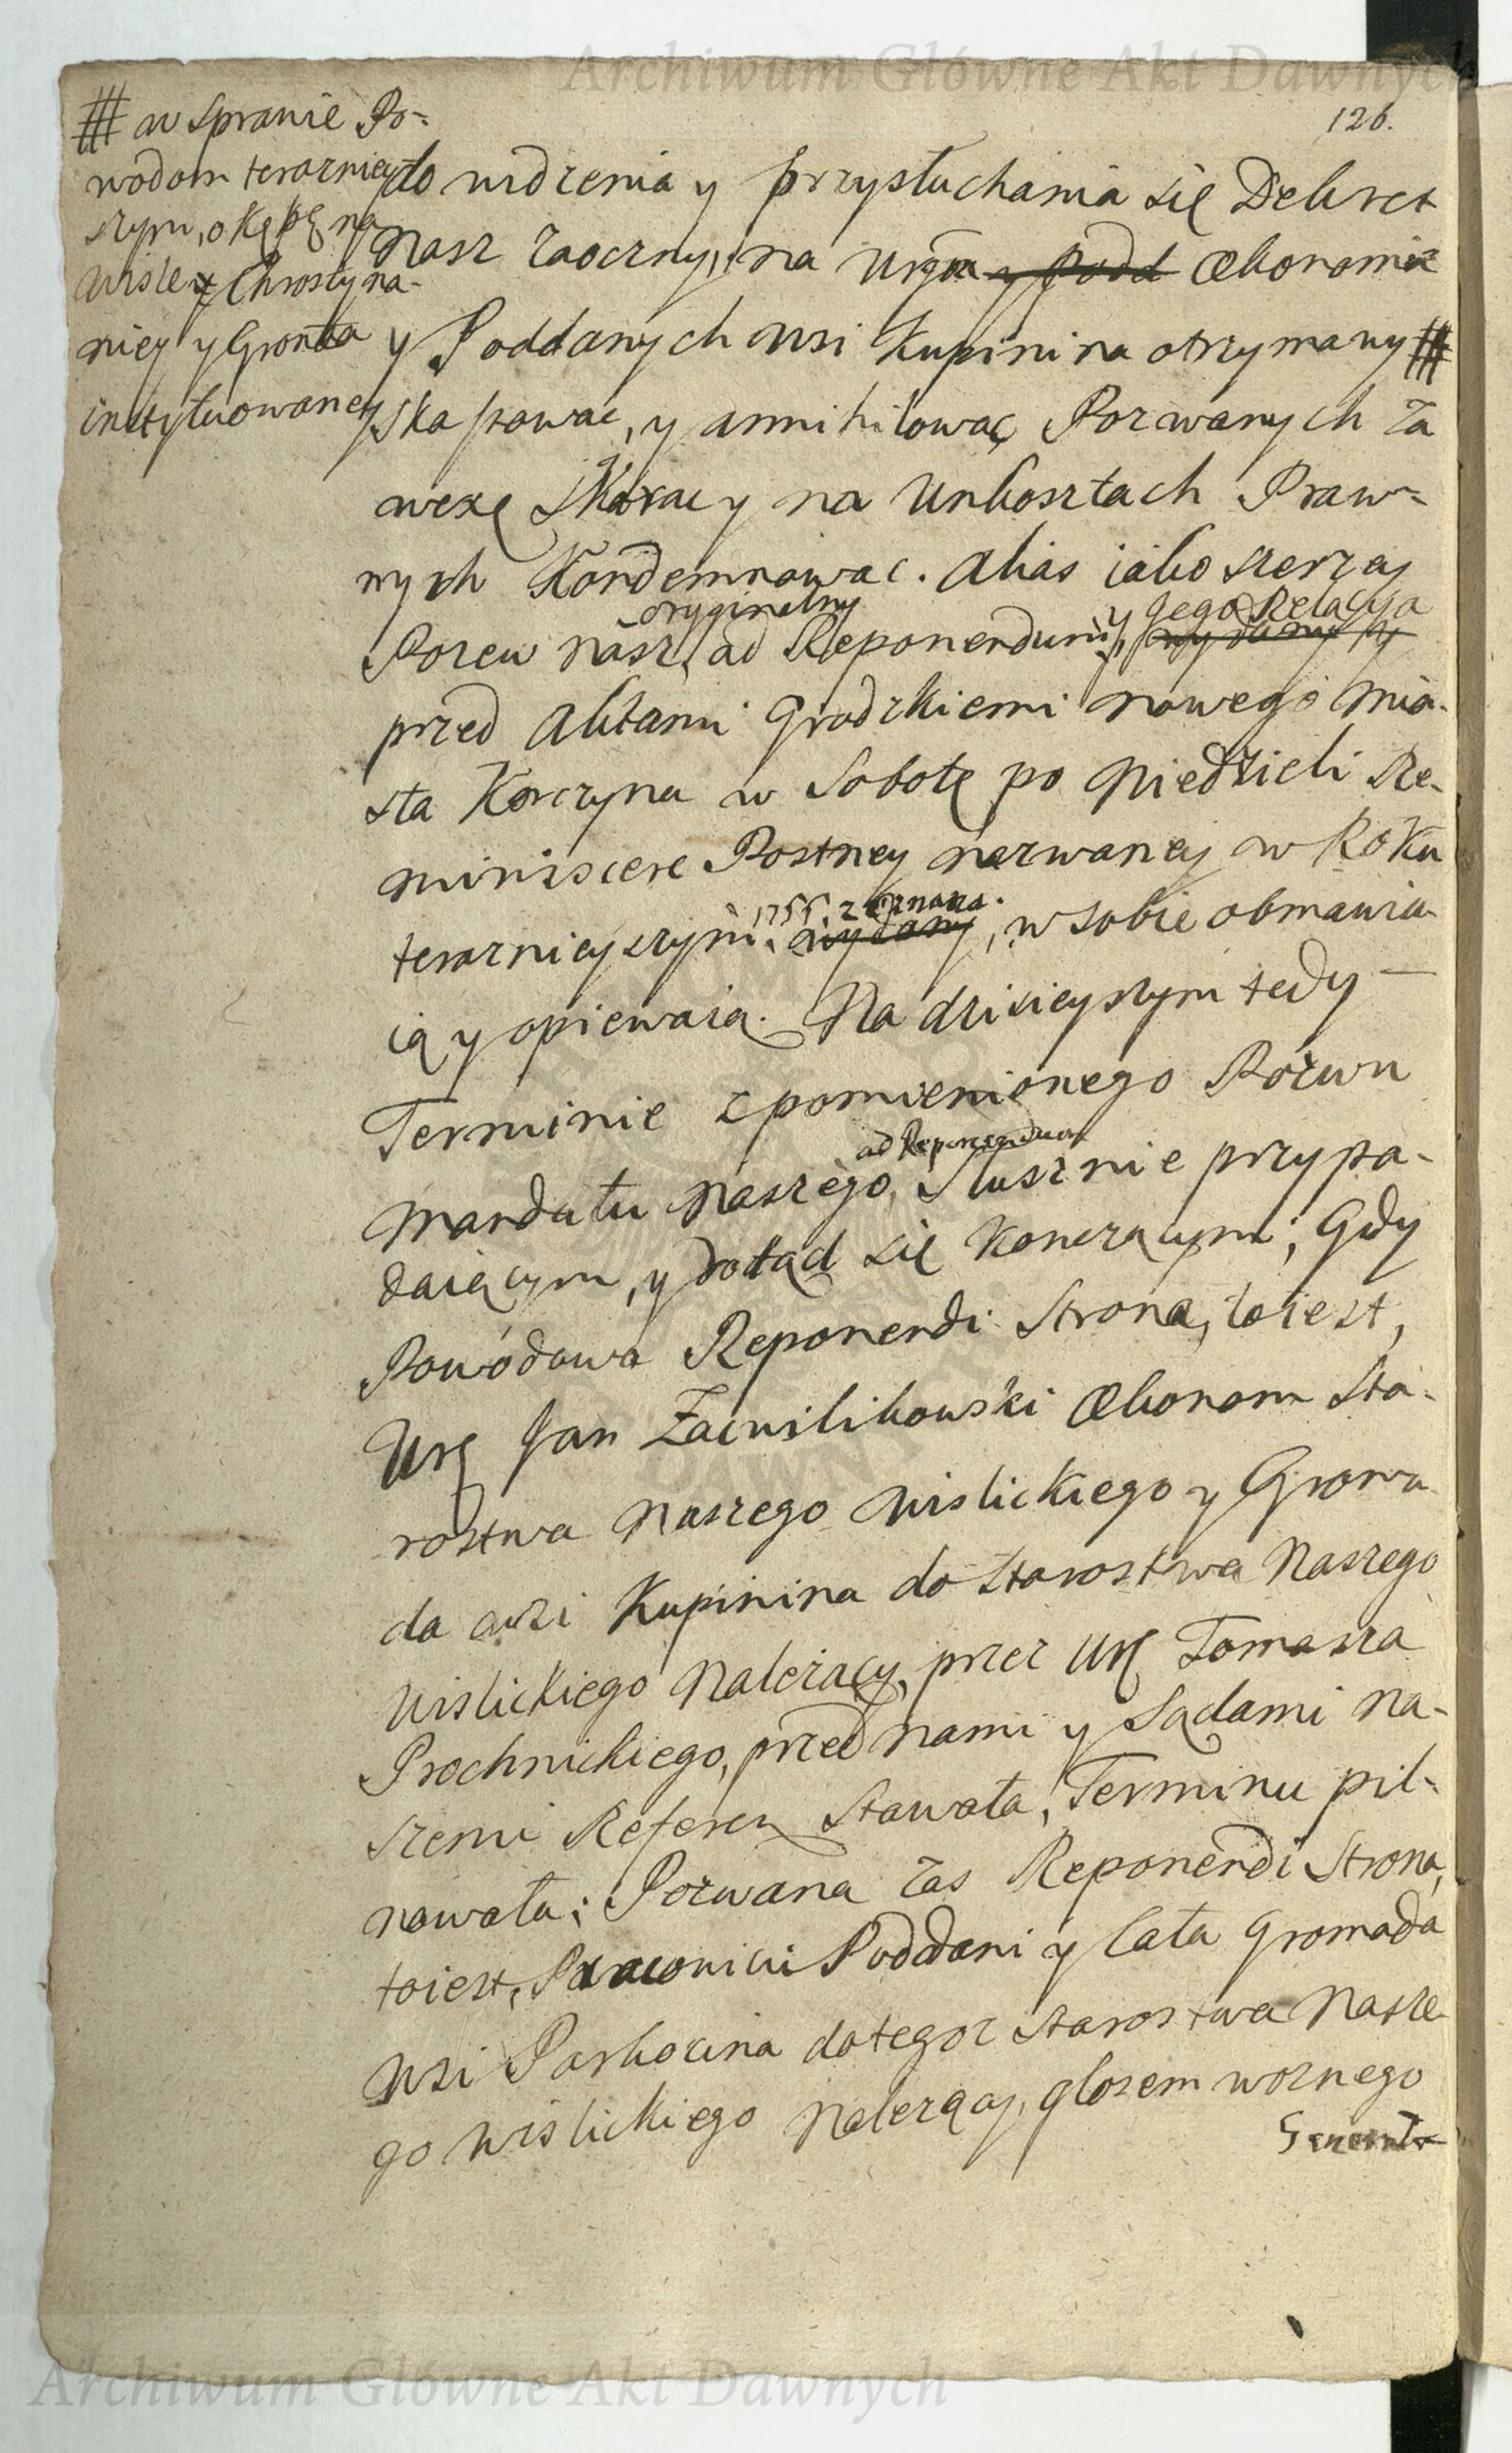 Archiwum Główne Akt Dawnych
126.
# w sprawie Po-
wodom terazniey
szym, o Kępę na
Wisle y Chrostyna-
niey y Gronta
instytuowaney
do widzenia y przysłuchania się Dekret
Nasz zaoczny, na Urgo y podd Œkonomie
y Poddanych wsi Kupinina otrzymany #
skassowac, y annihilowac Pozwanych za
wexę skarac y na Unkosztach Praw-
nych Kondemnowac. Alias iako szerzey
oryginalny
y Jego Relacya
Pozew nasz, ad Reponendum, wydany y
przed Aktami Grodzkiemi nowego Mia-
sta Korczyna w Sobotę po Niedzieli Re-
miniscere Postney nazwaney w Roku
1755. zeznana.
teraznieyszym wydany, w sobie obmawia-
ią y opiewaią. Na dzisieyszym tedy
Terminie z pomienionego Pozwu
ad Reponendum
Mandatu Naszego, Słusznie przypa-
daiącym, y dotąd się Konczącym, Gdy
Powódowa Reponendi Strona, toiest,
Ur Jan Zacwilikowski Œkonom Sta-
rostwa Naszego Wislickiego y Groma-
da wsi Kupinina do Starostwa Naszego
Wislickiego Nalezący, przez Ur Tomasza
Prochnickiego, przed nami y Sądami Na-
szemi Referen Stawała, Terminu pil-
nowała; Pozwana zas Reponendi Strona,
toiest, Pracowici Poddani y Cała Gromada
wsi Parkocina do tegoz Starostwa Nasze-
go Wislickiego Nalezący, głosem woznego
Generała
Archiwum Główne Akt Dawnych